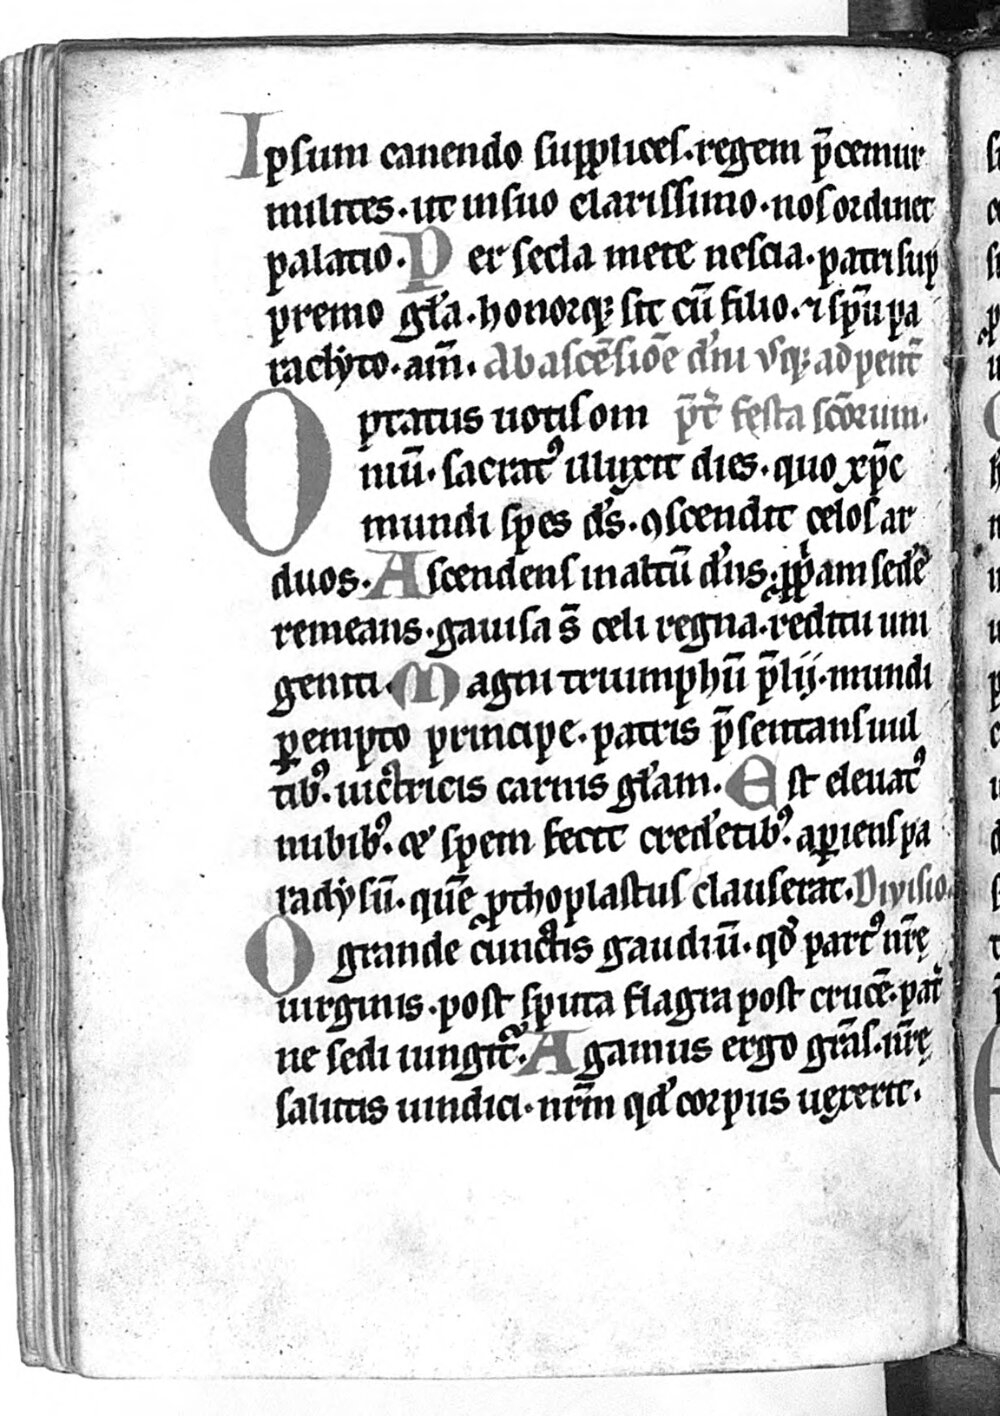 Ipsum canendo supplices·regem p̄cemur
milites·ut insuo clarissimo·nos ordinet
palatio·Per secla mete nescia·patri sup
premo gl̄a·honorq; sit cū filio·⁊ sp̄u pa
raclyto·am̄· Ab ascēsiōe dn̄i usq; ad pent̄
Optatus uotis om p̄t̓ festa scōrum·
niū·sacratꝰ illuxit dies·quo xp̄c
mundi spes d̄s·ꝯscendit celos ar
duos·Ascendens in altū dn̄s·pp̓am sedē
remeans·gauisa s̄ celi regna·reditu uni
geniti·Magni triumphū p̄lij·mundi
ꝑempto principe·patris p̄sentans uul
tibꝰ·uictricis carnis gl̄am·Est eleuatꝰ
nubibꝰ·ce spem fecit credētibꝰ·aꝑiens pa
radysū·quē ꝓthoplastus clauserat·Diuisio·
O grande cunctis gaudiū·qd̓ partꝰ nr̄ę
uirginis·post sputa flagra post crucē·pat̓
ne sedi iungit᷑·Agamus ergo grās·nr̄ę
salutis uindici·nr̄m qd̓ corpus uexerit·